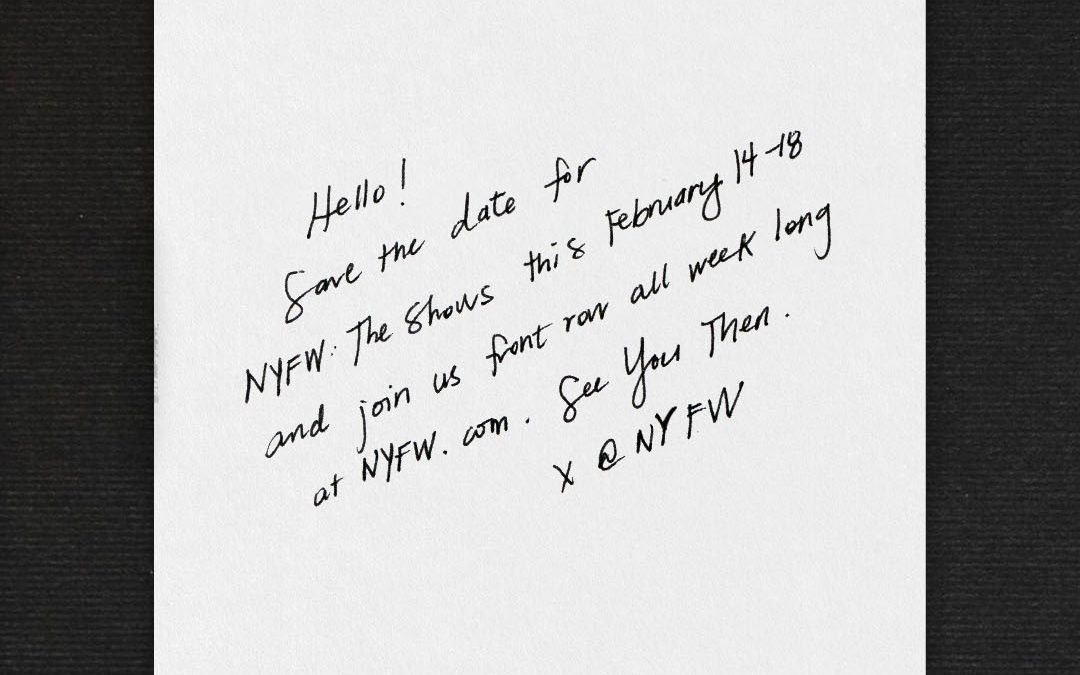 Hello!
Save the date for
NYFW: The Shows this February 14-18
and join us front row all week long
at NYFW.com. See You Then.
X @NYFW